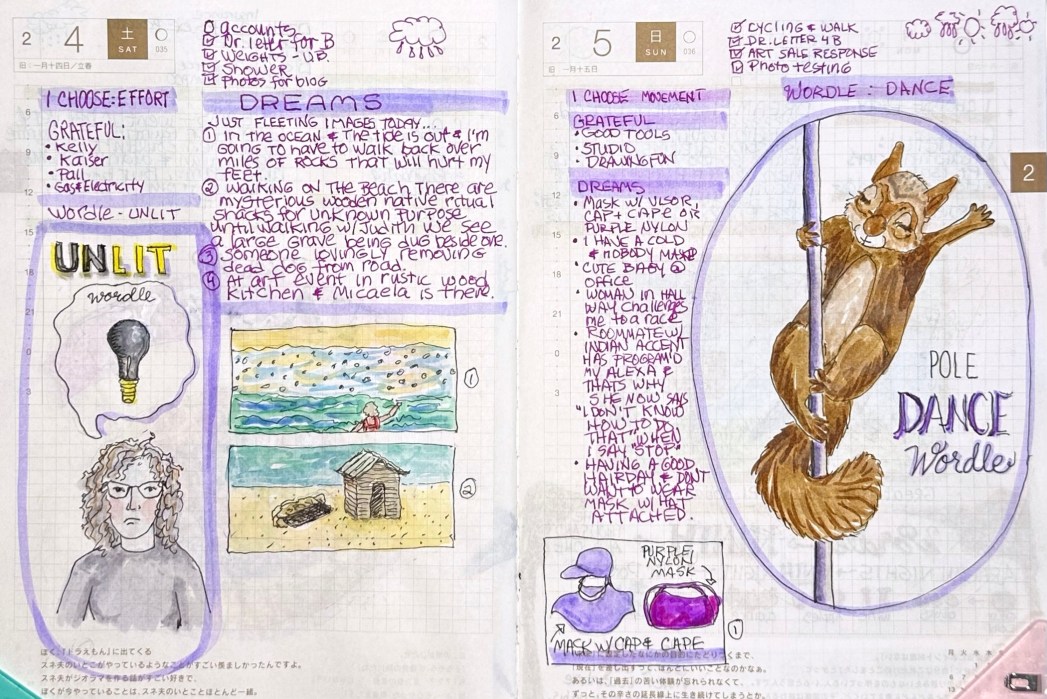 2
4
土
SAT
035
旧:一月十四日/立春
accounts
Dr. letter for B
Weights - UB
Shower
Photos for blog
I CHOOSE: EFFORT
GRATEFUL:
• Kelly
• Kaiser
• Paii
• Gas & Electricity
Wordle - UNLIT
UNLIT
wordle
DREAMS
JUST FLEETING IMAGES TODAY...
① In the ocean & the tide is out & I'm
going to have to walk back over
miles of rocks that will hurt my
feet.
② Walking on the beach there are
mysterious wooden native ritual
shacks for unknown purpose
until walking w/Judith we see
a large grave being dug beside one.
③ Someone lovingly removing
dead dog from road.
④ At art event in rustic wood
kitchen & Micaela is there.
①
②
6
9
12
15
18
21
0
3
ぼく、『ドラえもん』に出てくる
スネ夫のいとこがやっているようなことがすごい羨ましかったんですよ。
スネ夫がジオラマを作る話がすごい好きで、
ぼくが今やっていることは、スネ夫のいとことほとんど一緒。
2
5
日
SUN
036
旧:一月十五日
CYCLING & WALK
DR. LETTER 4B
ART SALE RESPONSE
Photo testing
WORDLE: DANCE
I CHOOSE MOVEMENT
GRATEFUL
• GOOD TOOLS
• STUDIO
• DRAWING FUN
DREAMS
• Mask w/ VISOR,
CAP + CAPE OR
PURPLE NYLON
• I HAVE A COLD
& NOBODY MAKE
• CUTE BABY @
OFFICE
• WOMAN IN HALL
WAY challenges
me to a race
• ROOMMATE W/
INDIAN ACCENT
HAS PROGRAM'D
MY ALEXA &
THATS WHY
SHE NOW SAYS
"I DON'T KNOW
HOW TO DO
THAT" WHEN
I SAY "STOP"
• HAVING A GOOD
HAIRDAY & DON'T
WANT TO WEAR
MASK W/ HAT
ATTACHED.
POLE
DANCE
Wordle
2
PURPLE
NYLON
MASK
MASK W/ CAP & CAPE
①
6
9
12
15
18
21
0
3
「現在」を差し出すって、ほんとにいいことなのかなぁ。
あるいは、「過去」の苦い体験が忘れられなくて、
ずっと、その辛さの延長線上に生き続けてしまうとか。
月 火 水 木